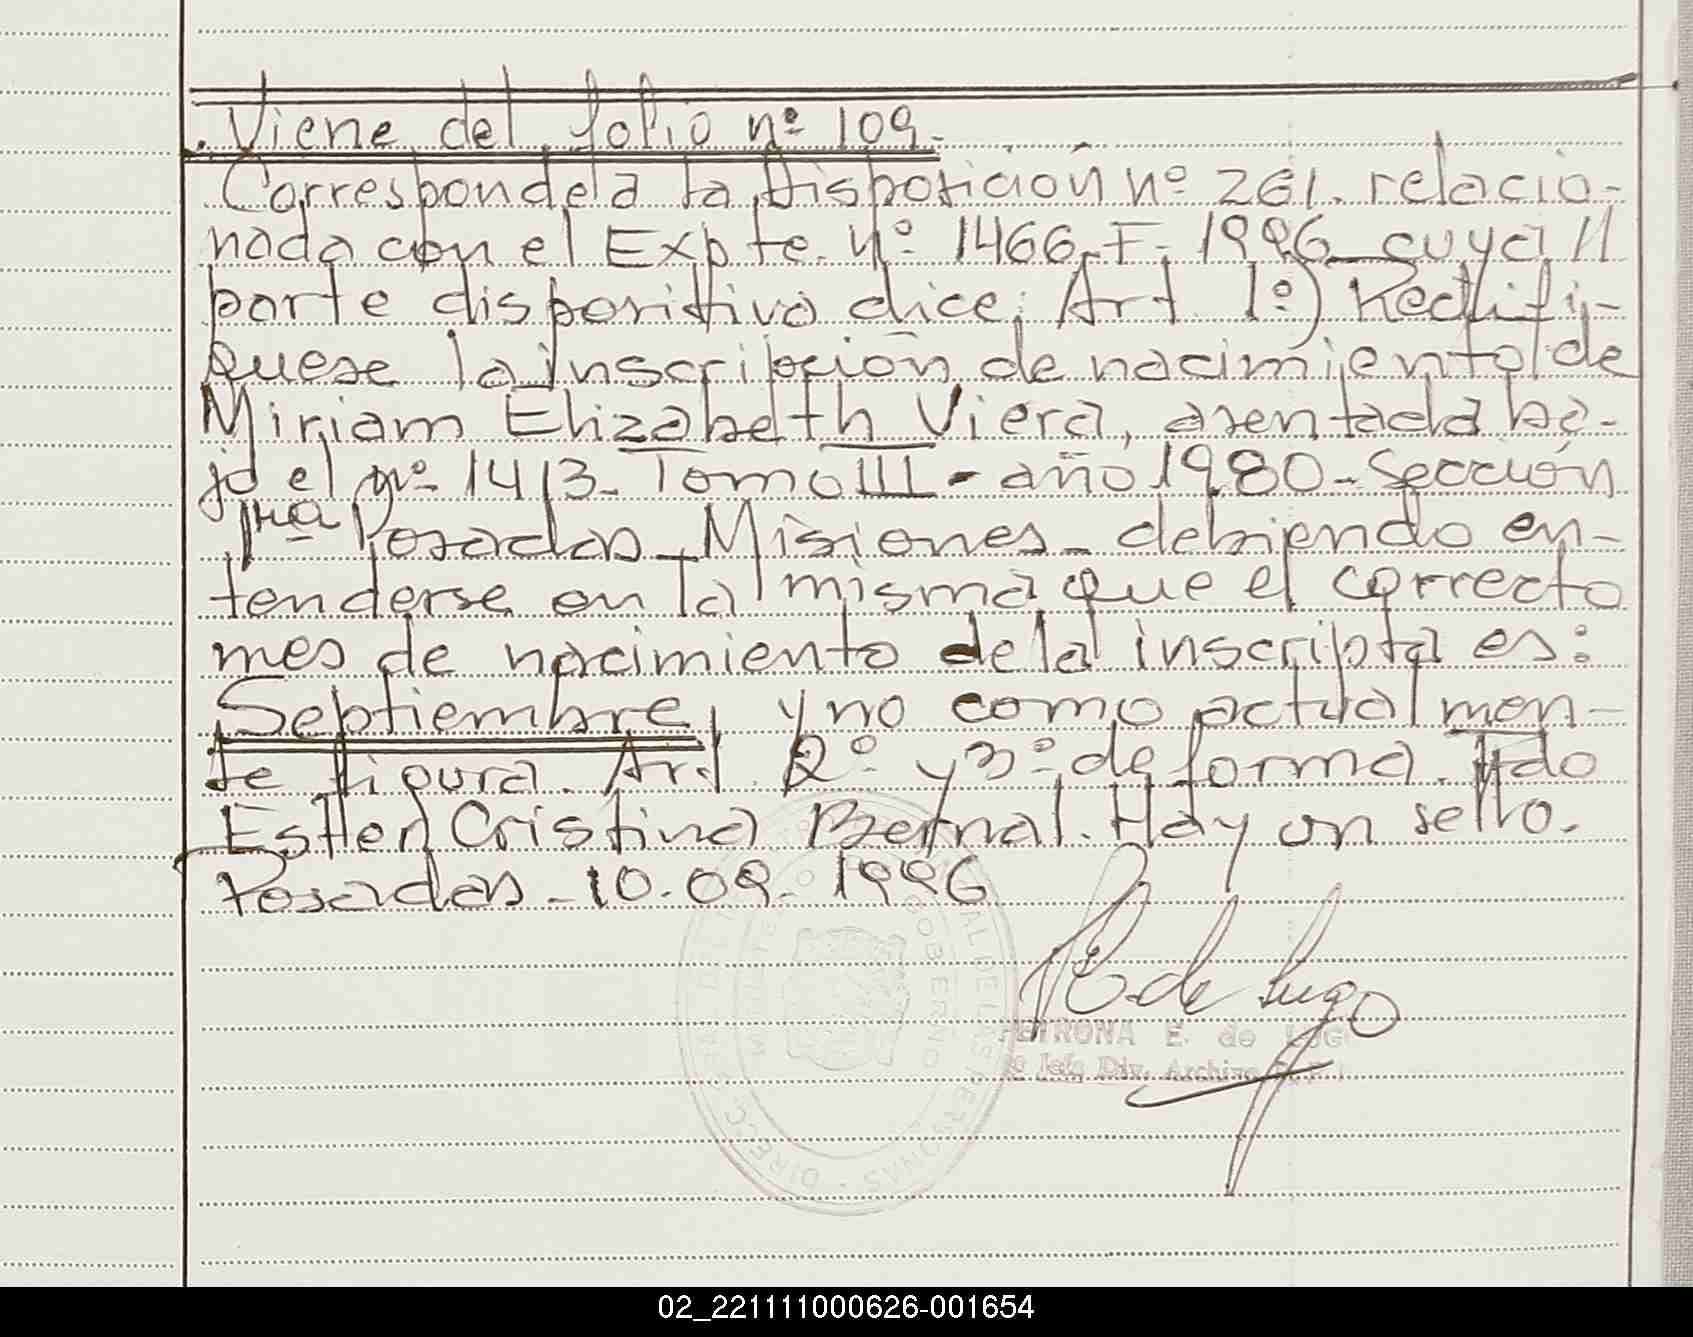 Viene del folio nº 109.-
Corresponde a la Disposición nº 261. relacio-
nada con el Expte. nº 1466-F-1996 cuya //
parte dispositiva dice: Art 1º) Rectifi-
quese la inscripción de nacimiento de
Miriam Elizabeth Viera, asentada ba-
jo el nº 1413- Tomo III - año 1980 - Sección
1ra Posadas - Misiones - debiendo en-
tenderse en la misma que el correcto
mes de nacimiento de la inscripta es:
Septiembre, y no como actualmen-
te figura. Art. 2º y 3º de forma. Fdo
Esther Cristina Bernal. Hay un sello.
Posadas - 10-09-1996
P E de Lugo
PETRONA E. de LUGO
Jefe Div. Archivo
02_221111000626-001654